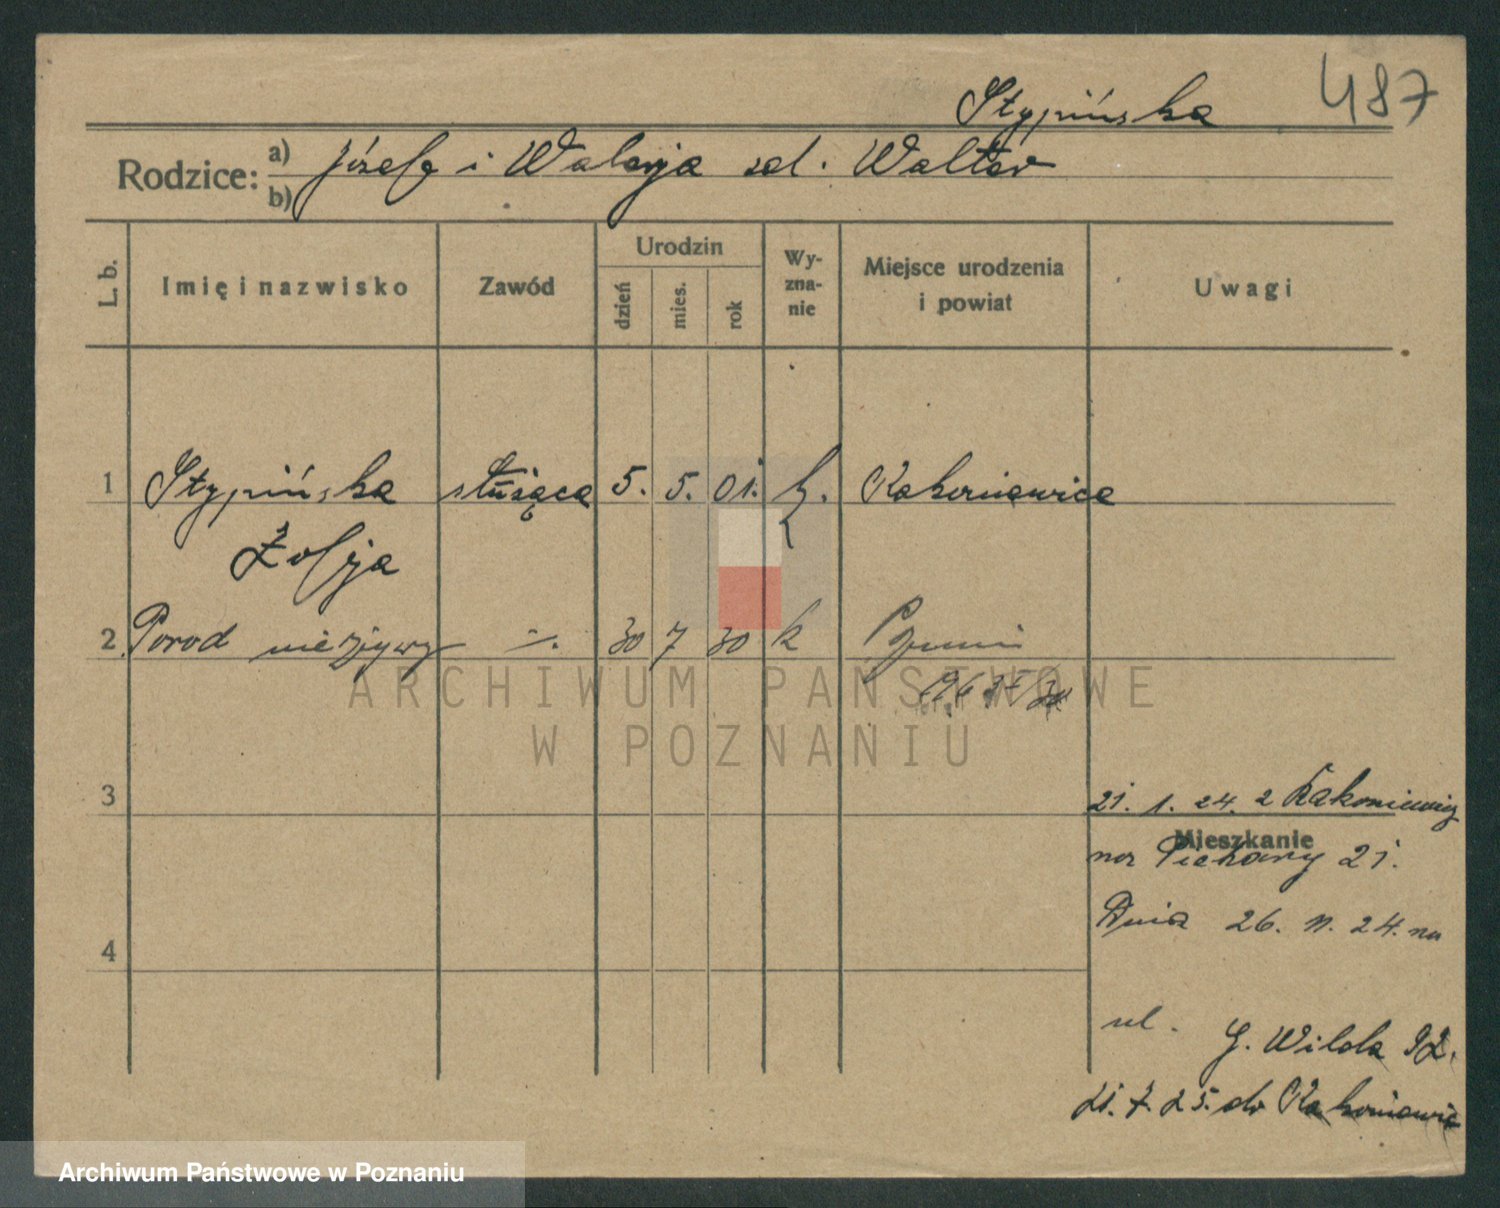 487
Stypińska
Rodzice: a) Józef i Walerja zd. Walter
b)
L. b.
Imię i nazwisko
Zawód
Urodzin
dzień
mies.
rok
Wy-
zna-
nie
Miejsce urodzenia
i powiat
Uwagi
1 Stypińska służąca 5. 5. 01. k. Rakoniewice
Zofja
2 Poród nieżywy -/. 30 7 30 k Poznań
3
21. 1. 24. z Rakoniewic
Mieszkanie
na Piekary 21.
Dnia 26. 11. 24. na
4
ul. G. Wilda 92.
21. 7. 25. do Rakoniewic
ARCHIWUM PAŃSTWOWE
W POZNANIU
Archiwum Państwowe w Poznaniu